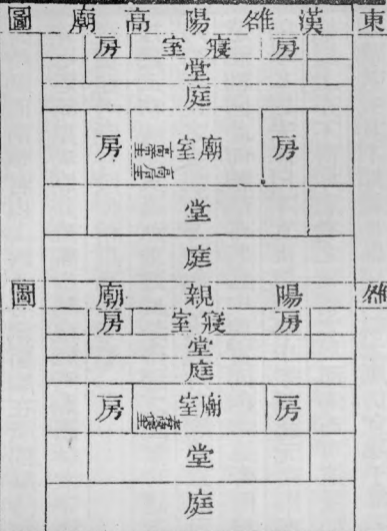 東漢雒陽高廟圖
房 寢室 房
堂
庭
房 廟室 房
堂
庭
雒陽親廟圖
房 寢室 房
堂
庭
房 廟室 房
堂
庭